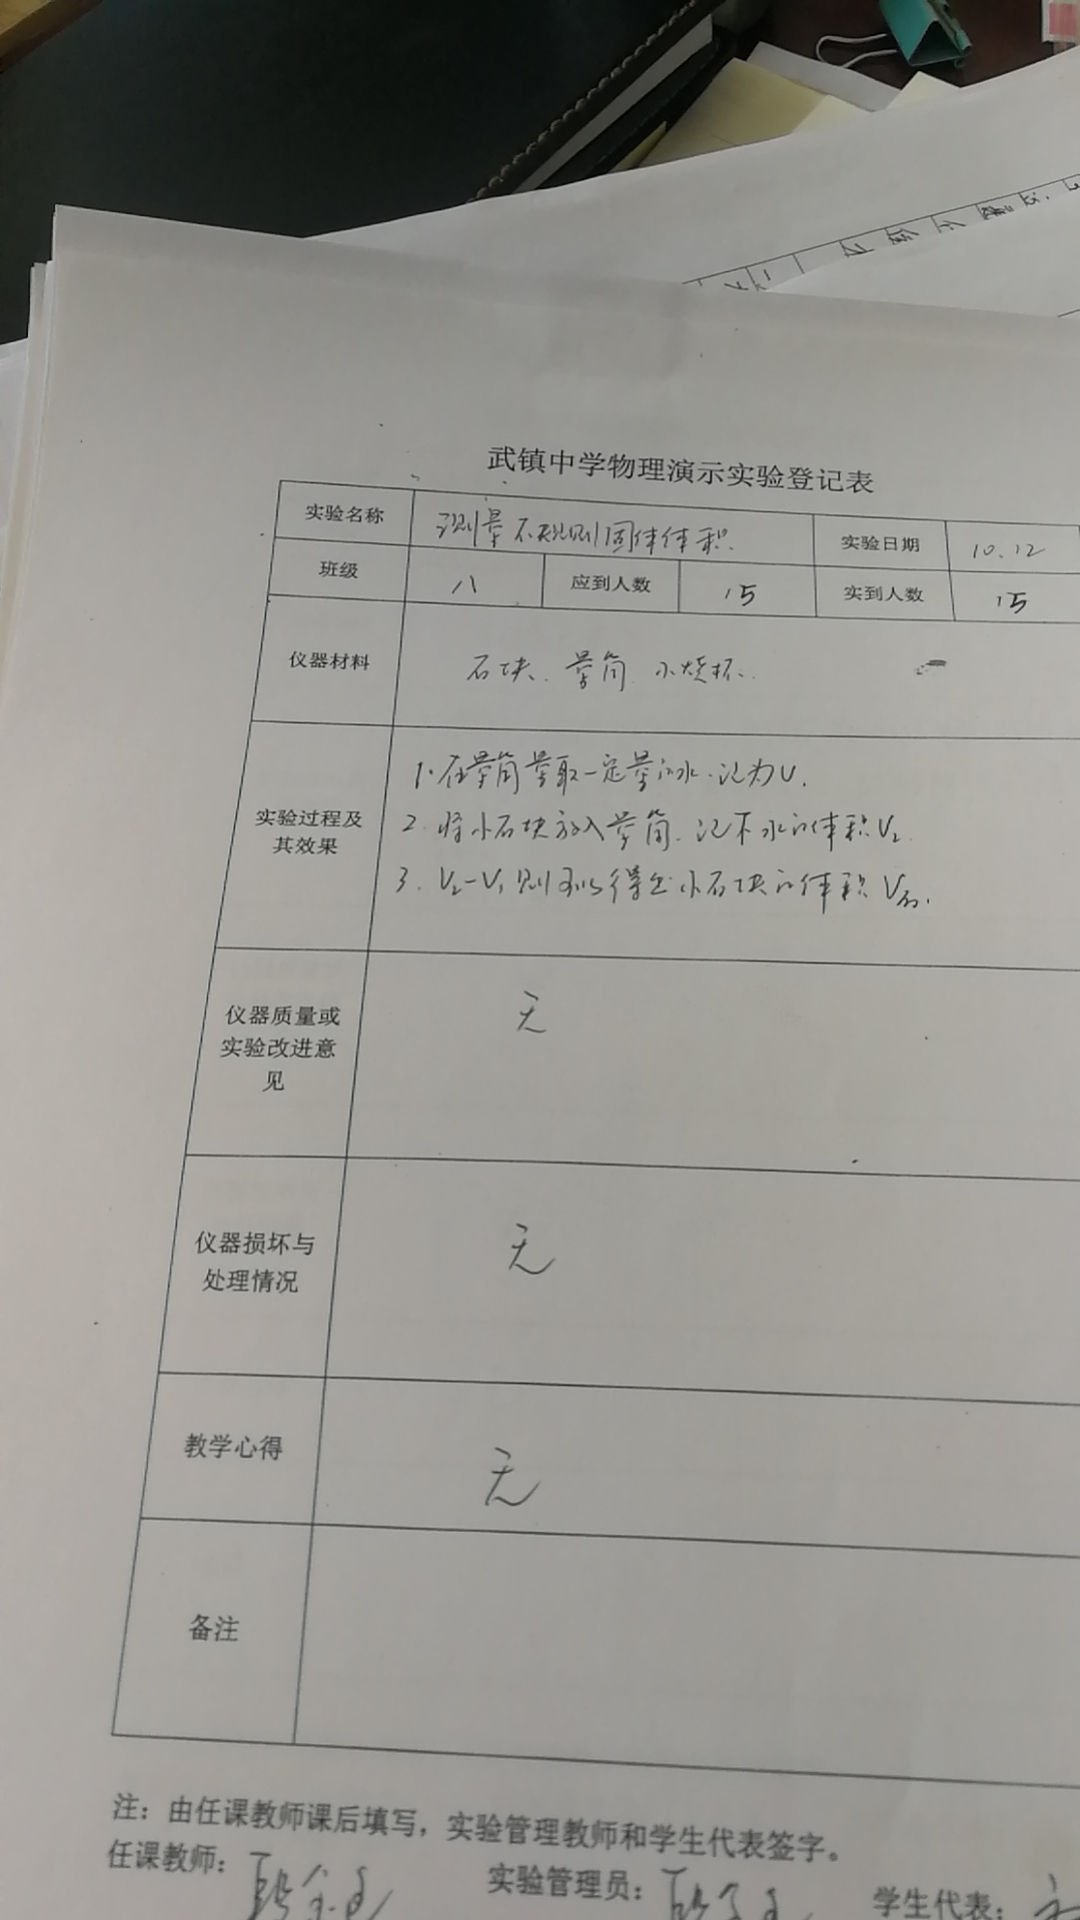 武镇中学物理演示实验登记表
实验名称 测量不规则固体体积 实验日期 10.12
班级 八 应到人数 15 实到人数 15
仪器材料 石块、量筒、小烧杯.
实验过程及其效果
1.在量筒量取一定量的水.记为V.
2.将小石块放入量筒.记下水的体积V₂.
3.V₂-V₁则可以得出小石块的体积V石.
仪器质量或
实验改进意
见
无
仪器损坏与
处理情况
无
教学心得 无
备注
注：由任课教师课后填写，实验管理教师和学生代表签字。
任课教师： 实验管理员： 学生代表：